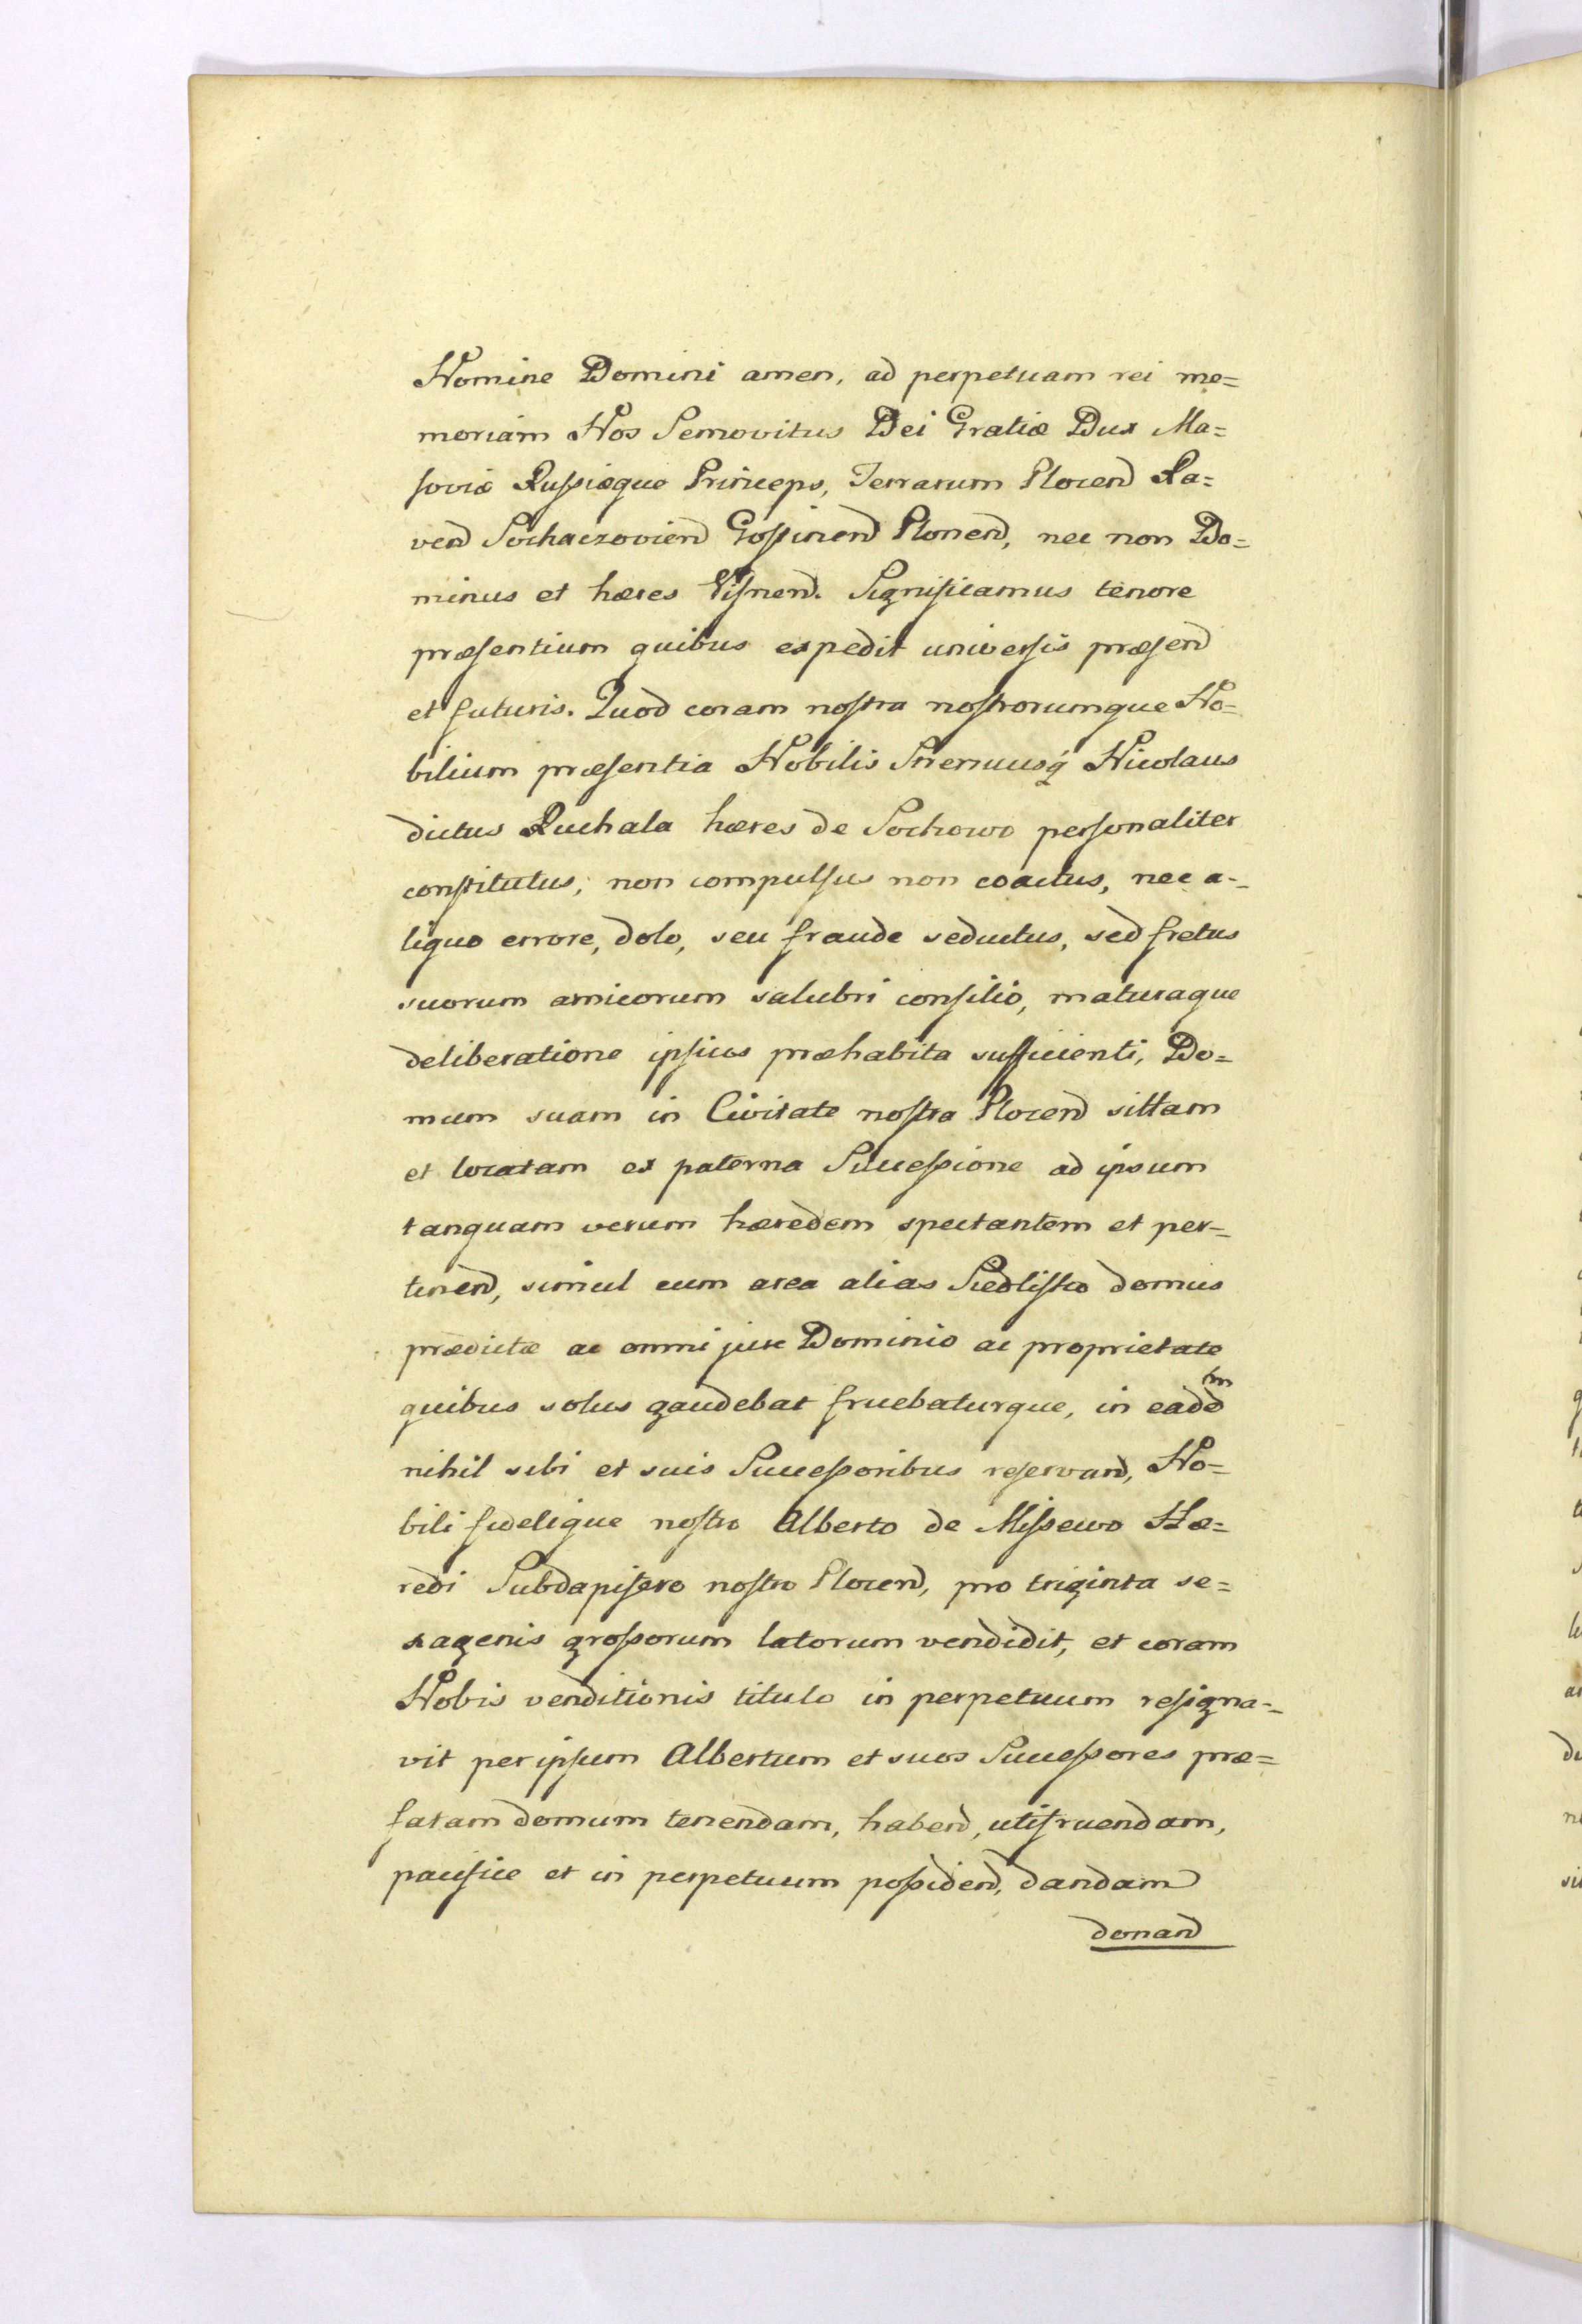 Nomine Domini amen, ad perpetuam rei me=
moriam Nos Semovitus Dei Gratiæ Dux Ma=
soviæ Russiæque Princeps, Terrarum Plocend Ra=
vend Sochaczoviend Gostinend Plonend, nec non Do=
minus et hæres Visnend. Significamus tenore
præsentium quibus expedit universis præsend
et futuris. Quod coram nostra nostrorumque No=
bilium præsentia Nobilis Strenuusq Nicolaus
dictus Ruchala hæres de Sochowo personaliter
constitutus, non compulsus non coactus, nec a=
liquo errore, dolo, seu fraude seductus, sed fretus
suorum amicorum salubri consilio, maturaque
deliberatione ipsius præhabita sufficienti, Do=
mum suam in Civitate nostra Plocend sittam
et locatam ex paterna Successione ad ipsum
tanquam verum hæredem spectantem et per=
tinend, simul cum area alias Siedlisko domus
prædictæ ac omni jure Dominio ac proprietate
quibus solus gaudebat fruebaturque, in eaddm
nihil sibi et suis Successoribus reservand, No=
bili fidelique nostro Alberto de Missewo Hæ=
redi Subdapifero nostro Plocend, pro triginta se=
xagenis grossorum latorum vendidit, et coram
Nobis venditionis titulo in perpetuum resigna=
vit per ipsum Albertum et suos Successores præ=
fatam domum tenendam, habend, utifruendam,
pacifice et in perpetuum possidend, dandam
donand